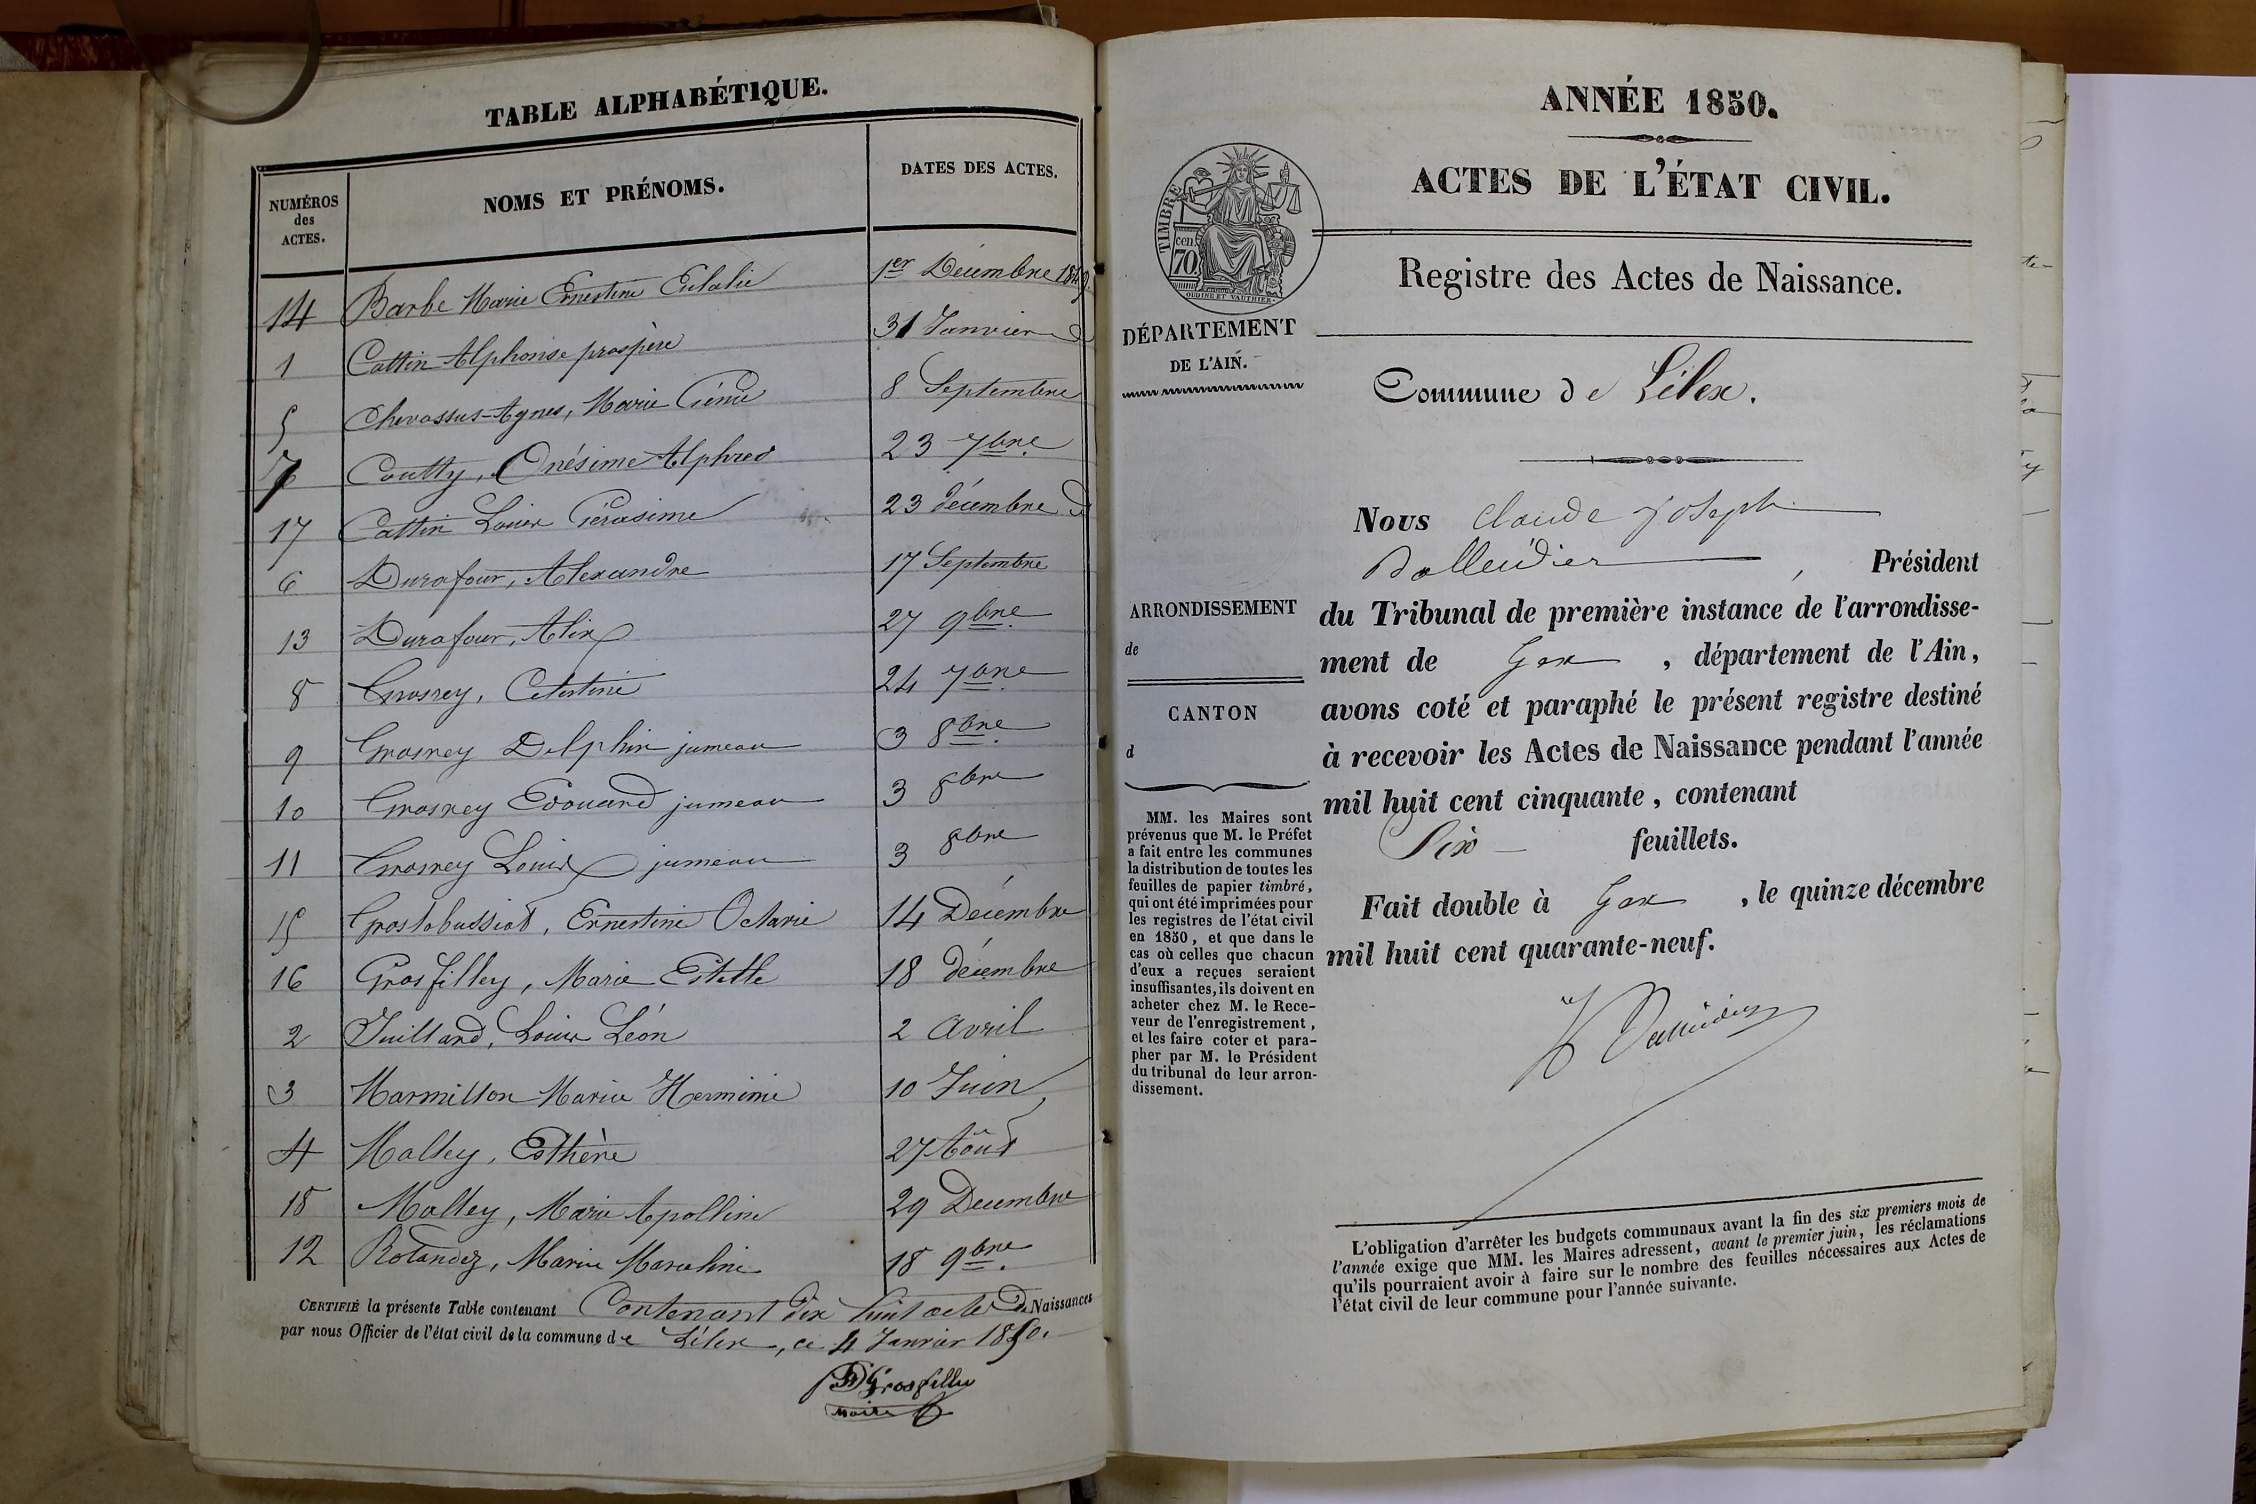 TABLE ALPHABÉTIQUE.
NUMÉROS des ACTES. NOMS ET PRÉNOMS. DATES DES ACTES.
14 Barbe Marie Ernestine Eulalie 1er Décembre 1849
1 Cattin Alphonse prospère 31 Janvier d
5 Chevassus-Agnes, Marie 8 Septembre
7 Coutty, Onésime Alphred 23 7bre.
17 Cattin Louise Gérasime 23 décembre d
6 Durafour, Alexandre 17 Septembre
13 Durafour, Alix 27 9bre.
8 Grosrey, Celestine 24 7bre.
9 Grosrey Delphin jumeau 3 8bre.
10 Grosrey Edouard jumeau 3 8bre
11 Grosrey Louis jumeau 3 8bre
15 Grostabussiat, Ernestine Octavie 14 Décembre
16 Grosfilley, Marie Estelle 18 décembre
2 Juilland, Louis Léon 2 avril
3 Marmillon Marie Herminie 10 Juin
4 Malley, Esthère 27 Aôut
18 Malley, Marie Apolline 29 Decembre
12 Rolandez, Marie Marceline 18 9bre.
CERTIFIÉ la présente Table contenant Contenant dix huit actes de Naissances
par nous Officier de l'état civil de la commune de Lélex, ce 4 Janvier 1850.
Grosfilley
Maire
ANNÉE 1850.
ACTES DE L'ÉTAT CIVIL.
TIMBRE
70 cen.
OUDINE ET VAUTHIER
Registre des Actes de Naissance.
DÉPARTEMENT
DE L'AIN.
Commune de Lélex.
ARRONDISSEMENT
de
CANTON
d
MM. les Maires sont
prévenus que M. le Préfet
a fait entre les communes
la distribution de toutes les
feuilles de papier timbré,
qui ont été imprimées pour
les registres de l'état civil
en 1850, et que dans le
cas où celles que chacun
d'eux a reçues seraient
insuffisantes, ils doivent en
acheter chez M. le Rece-
veur de l'enregistrement,
et les faire coter et para-
pher par M. le Président
du tribunal de leur arron-
dissement.
Nous Claude joseph
Balleidier, Président
du Tribunal de première instance de l'arrondisse-
ment de Gex, département de l'Ain,
avons coté et paraphé le présent registre destiné
à recevoir les Actes de Naissance pendant l'année
mil huit cent cinquante, contenant
Six feuillets.
Fait double à Gex, le quinze décembre
mil huit cent quarante-neuf.
L'obligation d'arrêter les budgets communaux avant la fin des six premiers mois de
l'année exige que MM. les Maires adressent, avant le premier juin, les réclamations
qu'ils pourraient avoir à faire sur le nombre des feuilles nécessaires aux Actes de
l'état civil de leur commune pour l'année suivante.